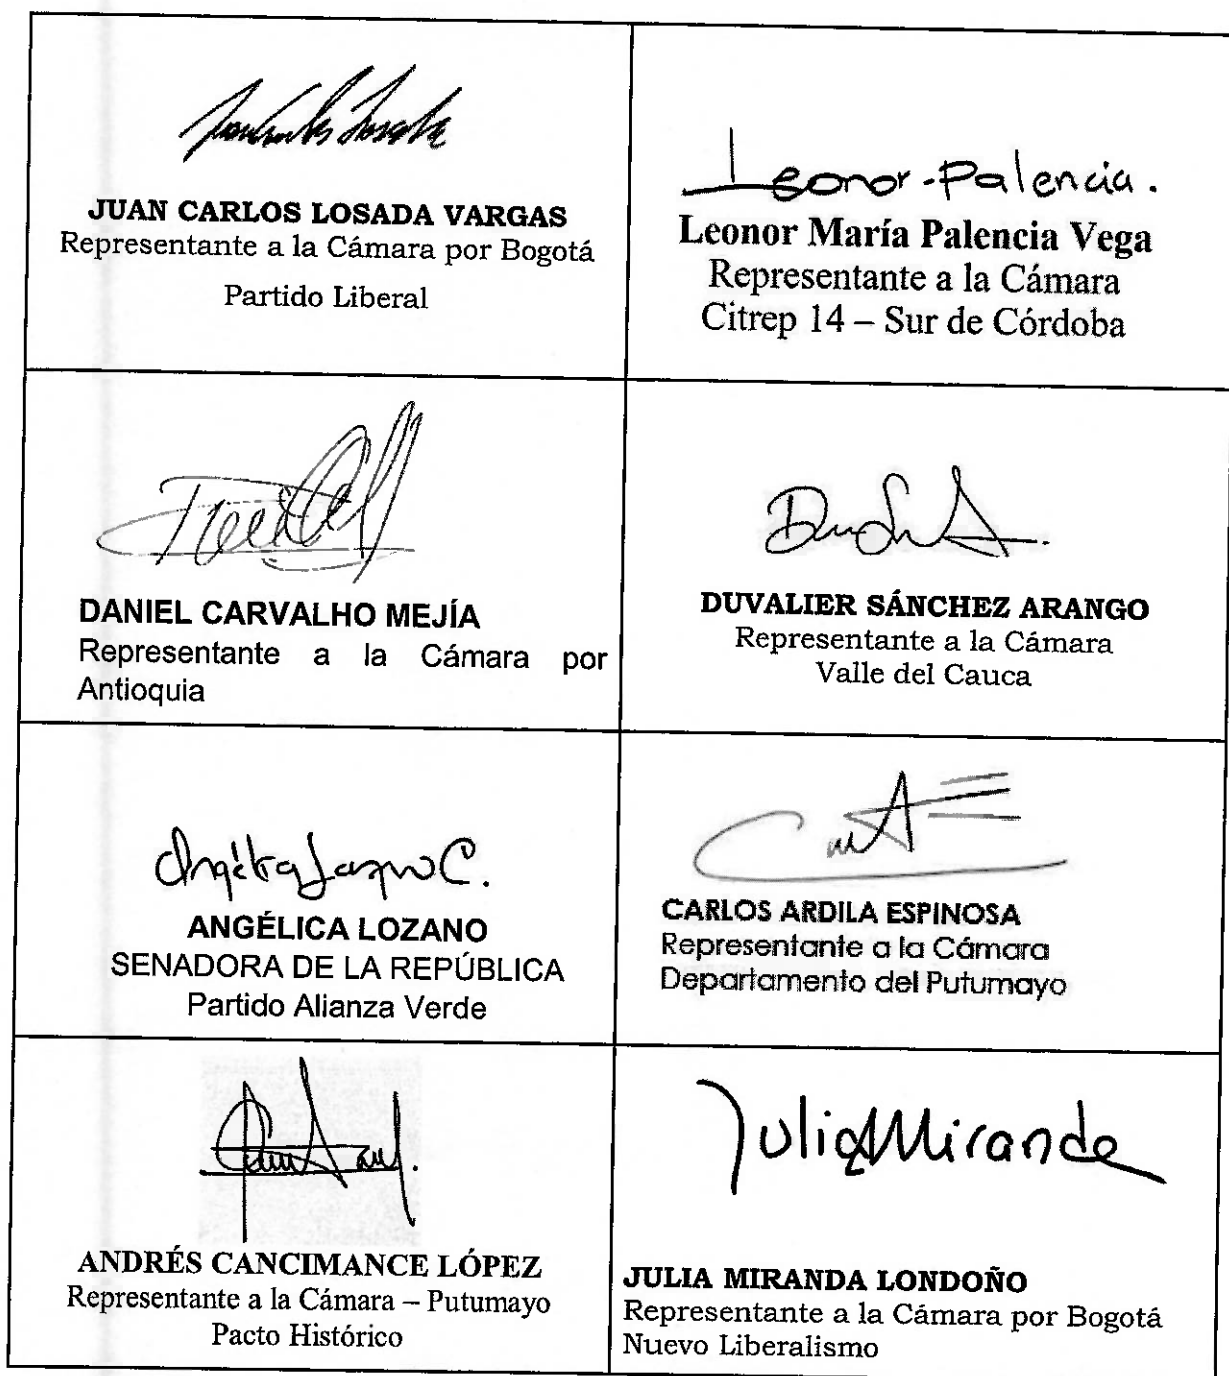 Juan Carlos Losada
JUAN CARLOS LOSADA VARGAS
Representante a la Cámara por Bogotá
Partido Liberal
Leonor Palencia.
Leonor María Palencia Vega
Representante a la Cámara
Citrep 14 – Sur de Córdoba
DANIEL CARVALHO MEJÍA
Representante a la Cámara por
Antioquia
DUVALIER SÁNCHEZ ARANGO
Representante a la Cámara
Valle del Cauca
Angélica Lozano C.
ANGÉLICA LOZANO
SENADORA DE LA REPÚBLICA
Partido Alianza Verde
CARLOS ARDILA ESPINOSA
Representante a la Cámara
Departamento del Putumayo
ANDRÉS CANCIMANCE LÓPEZ
Representante a la Cámara – Putumayo
Pacto Histórico
Julia Miranda
JULIA MIRANDA LONDOÑO
Representante a la Cámara por Bogotá
Nuevo Liberalismo